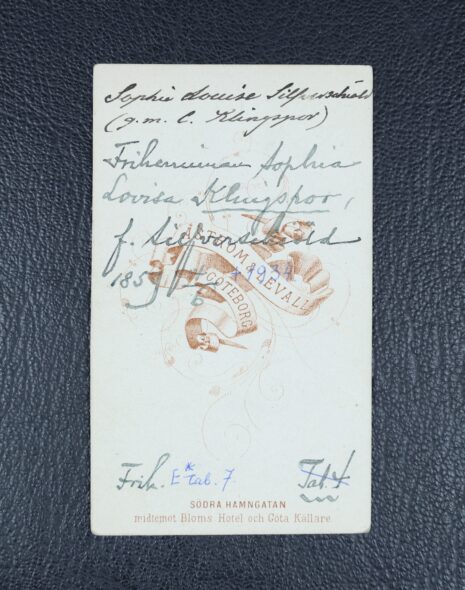 Sophie Louise Silfverschiöld
(g.m. C. Klingspor)
Friherrinnan Sophia
Lovisa Klingspor,
f. Silfverschiöld
1859 +1934
6
& LEVALL
GÖTEBORG
Frih. E* tab. 7. Tab. 4
SÖDRA HAMNGATAN
midtemot Bloms Hotel och Göta Källare